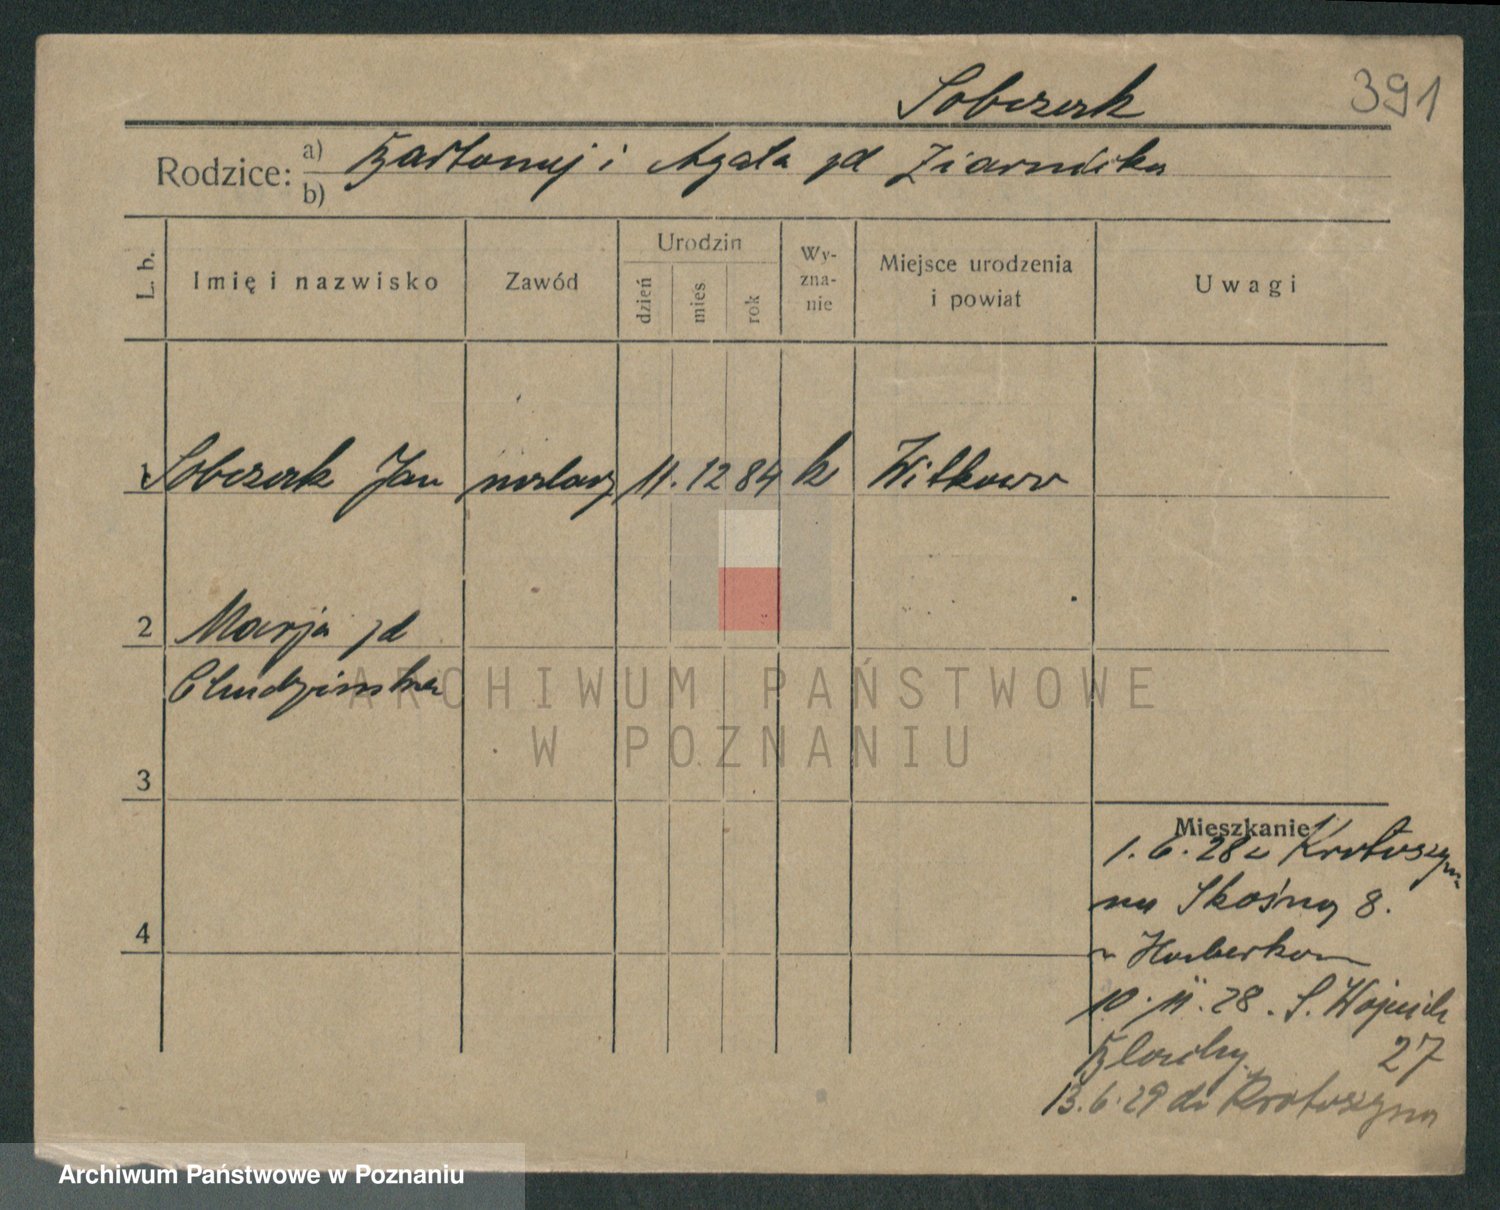 Sobczak
391
Rodzice: a) Bartłomiej i Agata zd Ziarnicka
b)
L. b.
Imię i nazwisko
Zawód
Urodzin
dzień
mies
rok
Wy-
zna-
nie
Miejsce urodzenia
i powiat
Uwagi
1 Sobczak Jan 11. 12 84 k Witkowo
2 Marja zd
Chudzińska
3
4
Mieszkanie
1. 6. 28 z Krotoszyna
na Skośną 8.
10. 11. 28. Ś. Wojciech
27
13. 6. 29 do Krotoszyna
ARCHIWUM PAŃSTWOWE
W POZNANIU
Archiwum Państwowe w Poznaniu